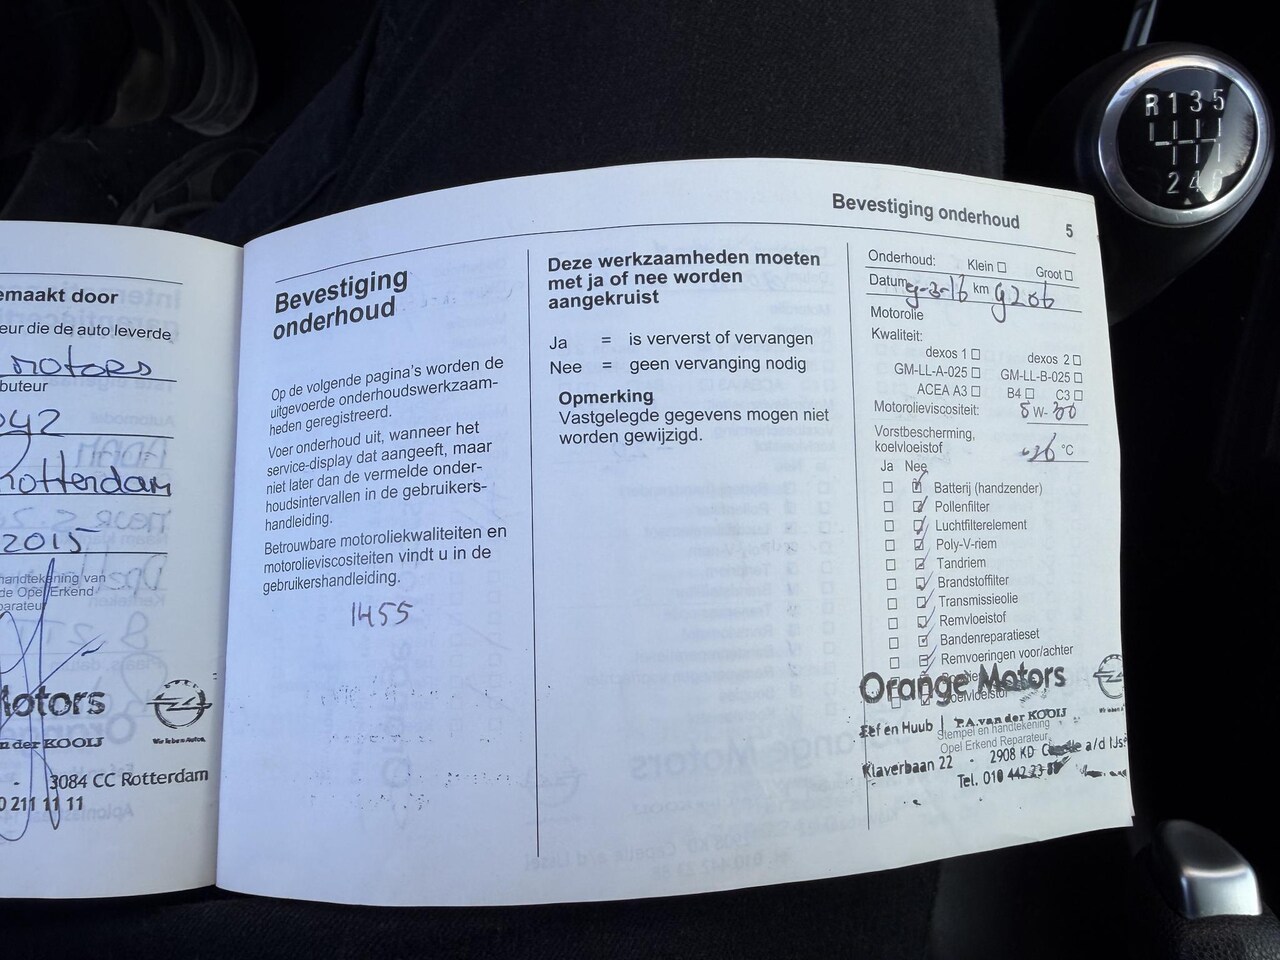 Bevestiging onderhoud
5
emaakt door
eur die de auto leverde
motors
buteur
042
Rotterdam
2015
handtekening van
de Opel Erkend
parateur
Motors
n der KOOIJ
Wir leben Autos.
- 3084 CC Rotterdam
0 211 11 11
Bevestiging
onderhoud
Op de volgende pagina's worden de
uitgevoerde onderhoudswerkzaam-
heden geregistreerd.
Voer onderhoud uit, wanneer het
service-display dat aangeeft, maar
niet later dan de vermelde onder-
houdsintervallen in de gebruikers-
handleiding.
Betrouwbare motoroliekwaliteiten en
motorolieviscositeiten vindt u in de
gebruikershandleiding.
1455
Deze werkzaamheden moeten
met ja of nee worden
aangekruist
Ja = is ververst of vervangen
Nee = geen vervanging nodig
Opmerking
Vastgelegde gegevens mogen niet
worden gewijzigd.
Onderhoud: Klein Groot
Datum 9-3-16 km 9206
Motorolie
Kwaliteit:
dexos 1 dexos 2
GM-LL-A-025 GM-LL-B-025
ACEA A3 B4 C3
Motorolieviscositeit: 5 W- 30
Vorstbescherming,
koelvloeistof -36 °C
Ja Nee
Batterij (handzender)
Pollenfilter
Luchtfilterelement
Poly-V-riem
Tandriem
Brandstoffilter
Transmissieolie
Remvloeistof
Bandenreparatieset
Remvoeringen voor/achter
Koelvloeistof
Orange Motors
Eef en Huub | P.A. van der KOOIJ
Stempel en handtekening
Opel Erkend Reparateur
Klaverbaan 22 - 2908 KD a/d IJs
Tel. 010 442
R 1 3 5
2 4 6